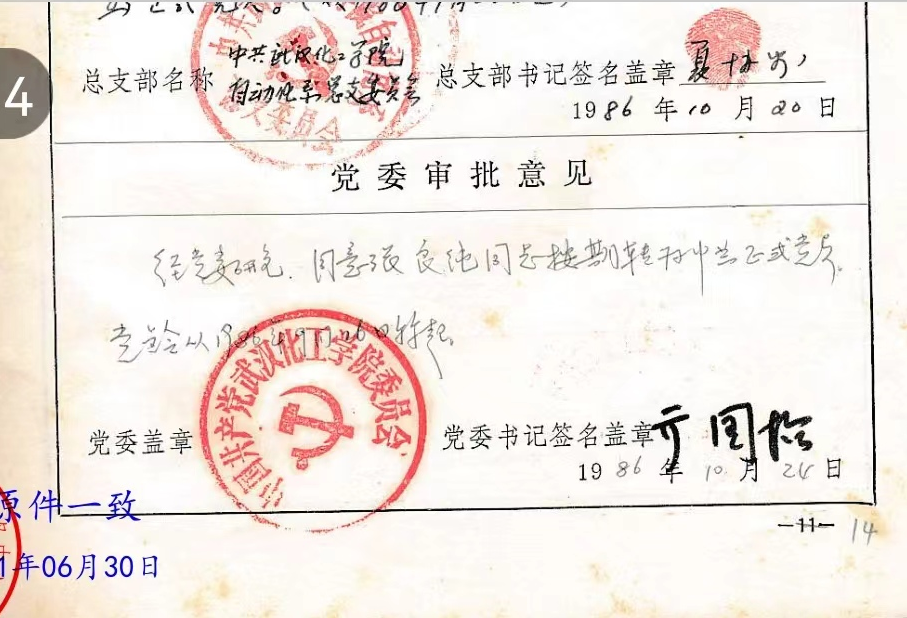 4
总支部名称 中共武汉化工学院
自动化系总支委员会 总支部书记签名盖章 夏
1986年10月20日
党委审批意见
经党委研究,同意张良纯同志按期转为中共正式党员。
党龄从1986年9月26日转起。
中国共产党武汉化工学院委员会
党委盖章 党委书记签名盖章
1986年10月24日
原件一致
1年06月30日
—11— 14